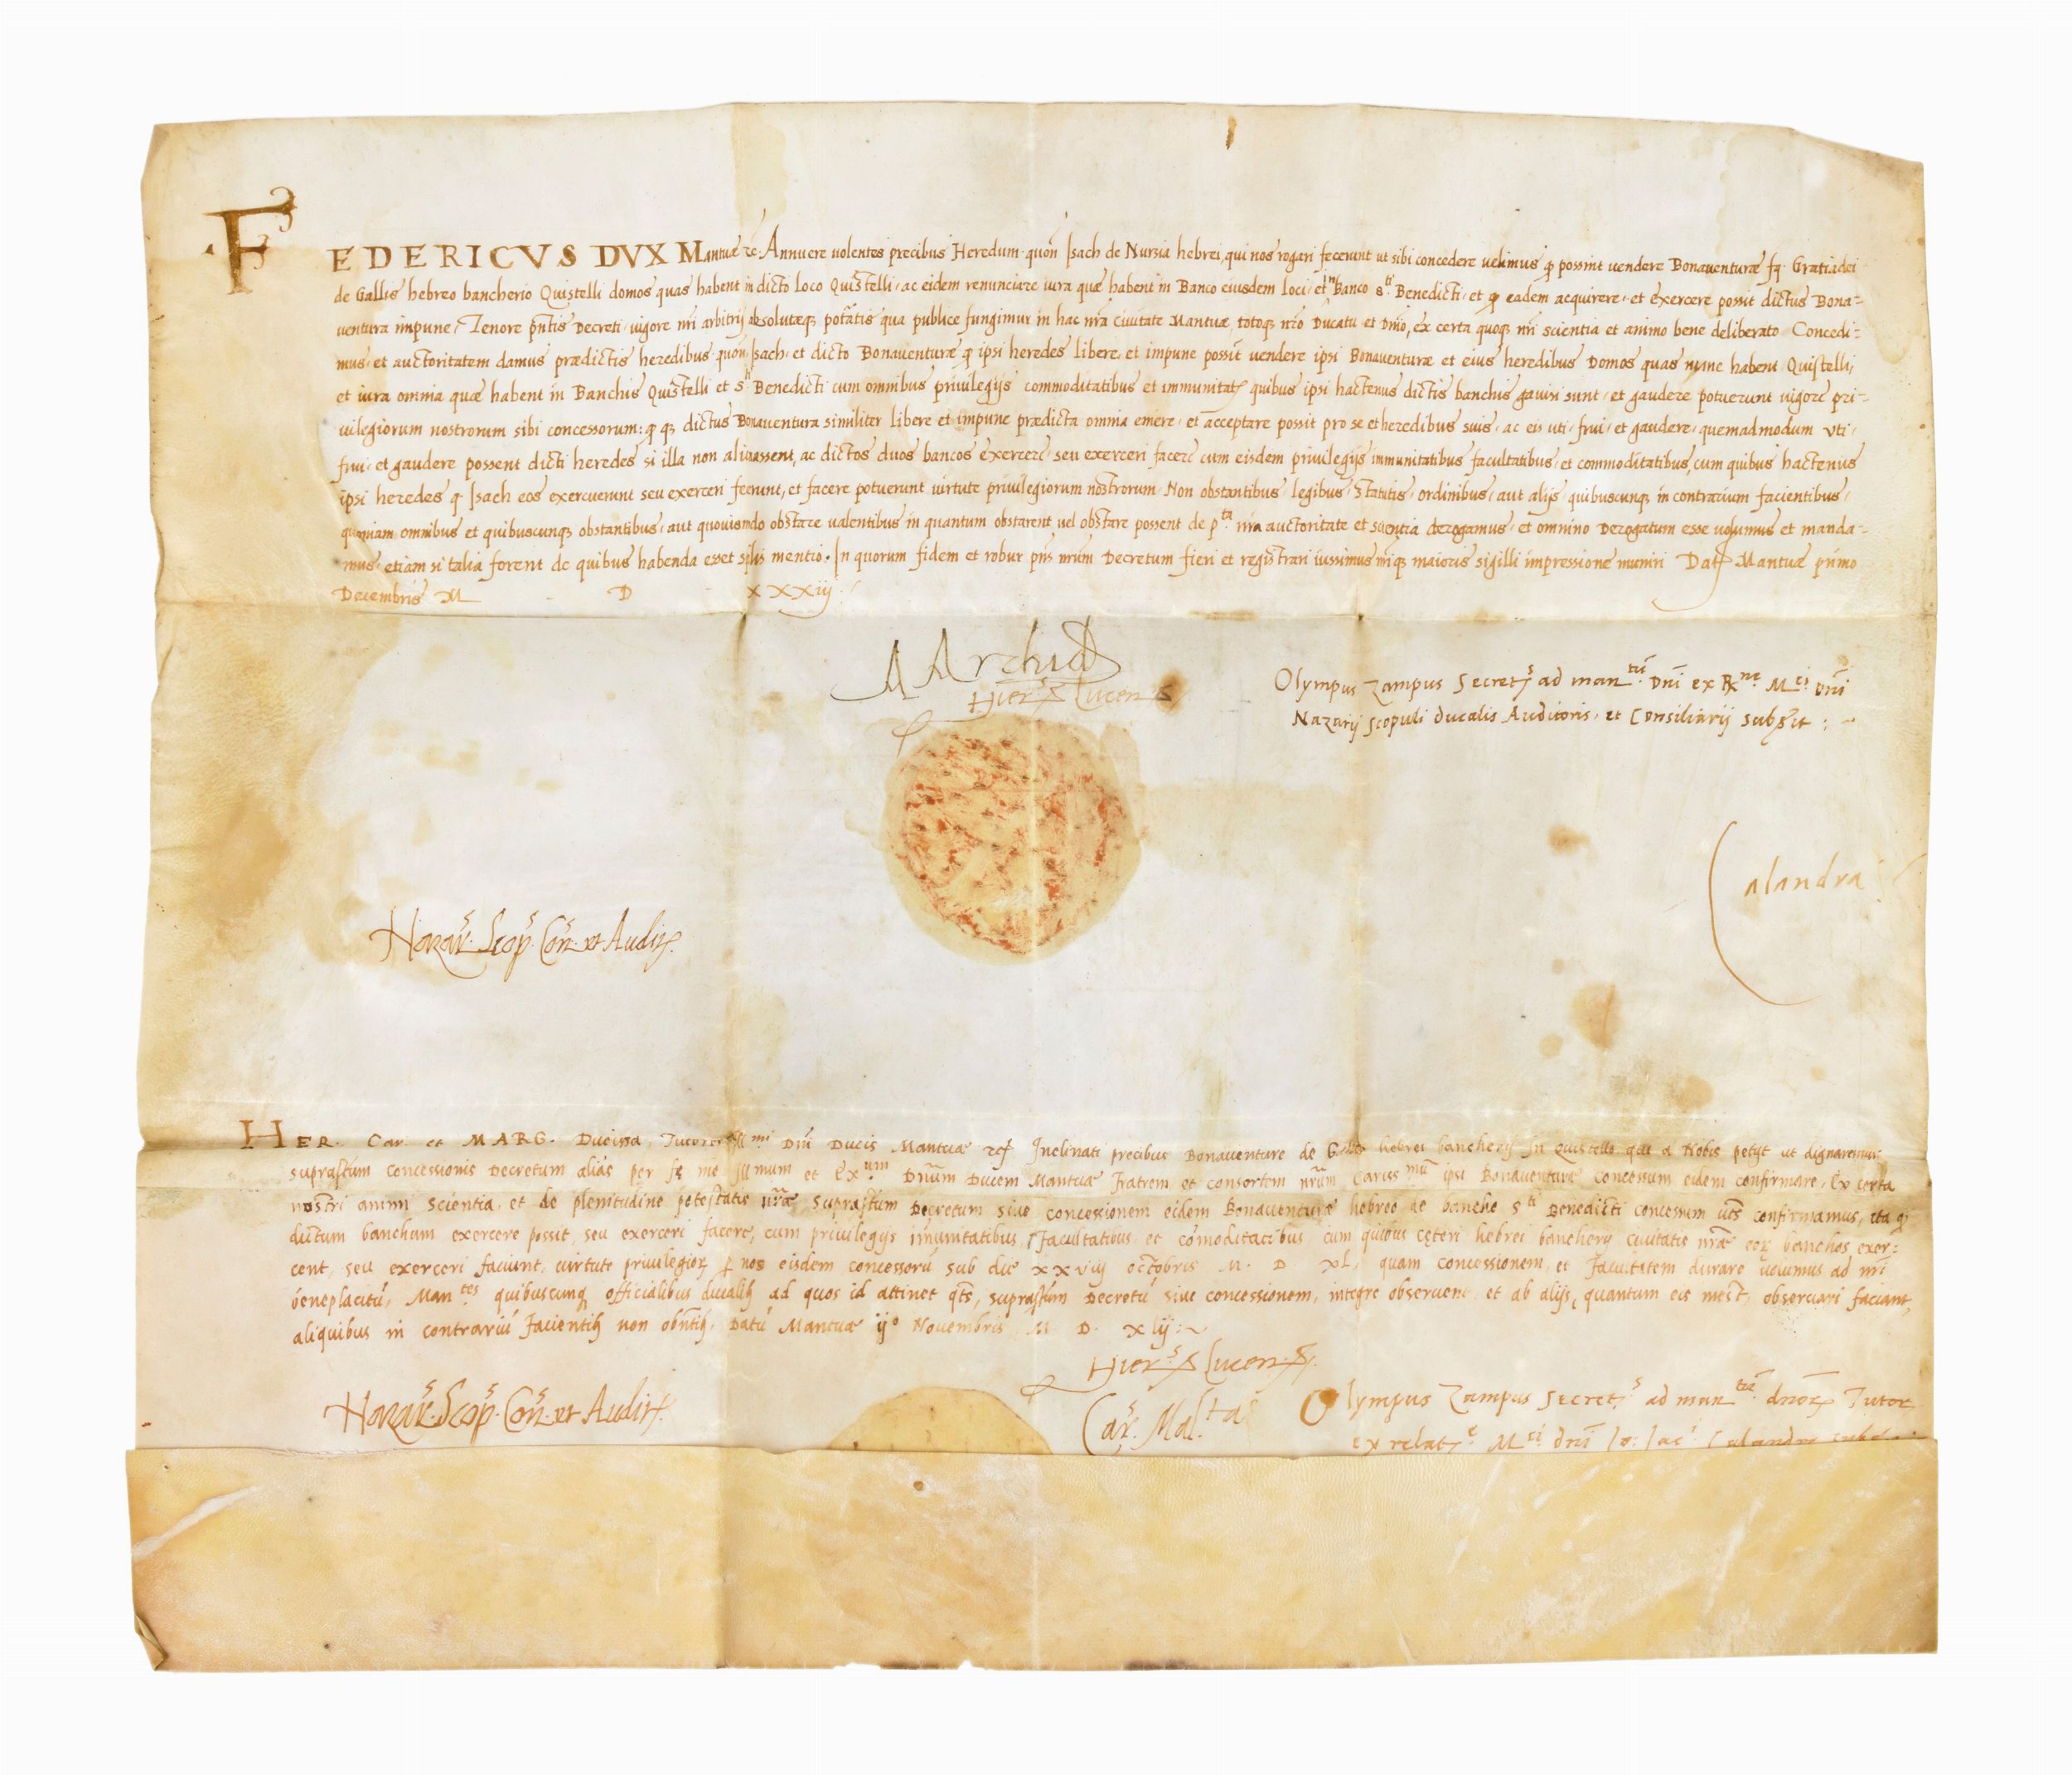 FEDERICVS DVX Mantuæ ec. Annuere uolentes precibus Heredum quon Isach de Nursia hebrei, qui nos rogari fecerunt ut sibi concedere uelimus ꝙ possint uendere Bonauenturæ fq. Gratiadei
de Gallis hebreo bancherio Quistelli domos quas habent in dicto loco Quistelli, ac eidem renunciare iura quæ habent in Banco eiusdem loci, et in Banco s.ti Benedicti, et ꝙ eadem acquirere, et exercere possit dictus Bona-
uentura impune, Tenore pñtis Decreti, uigore nr̃i arbitrij absolutæqꝫ potãtis qua publice fungimur in hac nr̃a Ciuitate Mantuæ, totoqꝫ nr̃o Ducatu et Dnĩo, ex certa quoqꝫ nr̃i scientia et animo bene deliberato Concedi-
mus, et auctoritatem damus prædictis heredibus quon Isach, et dicto Bonauenturæ ꝙ ipsi heredes libere, et impune possĩt uendere ipsi Bonauenturæ et eius heredibus Domos quas nunc habent Quistelli,
et iura omnia quæ habent in Banchis Quistelli et S.ti Benedicti cum omnibus priuilegijs commoditatibus et immunitatꝫ quibus ipsi hactenus dictis banchis gauisi sunt, et gaudere potuerunt uigore pri-
uilegiorum nostrorum sibi concessorum: ꝙ qꝫ dictus Bonauentura similiter libere et impune prædicta omnia emere, et acceptare possit pro se et heredibus suis, ac eis uti, frui, et gaudere, quemadmodum vti,
frui, et gaudere possent dicti heredes si illa non alienassent, ac dictos duos bancos exercere, seu exerceri facere cum eisdem priuilegijs immunitatibus facultatibus, et commoditatibus, cum quibus hactenus
ipsi heredes q. Isach eos exercuerunt seu exerceri fecerunt, et facere potuerunt uirtute priuilegiorum nostrorum. Non obstantibus legibus, Statutis, ordinibus, aut alijs quibuscunqꝫ in contrarium facientibus,
quoniam omnibus et quibuscunqꝫ obstantibus, aut quouismodo obstare ualentibus in quantum obstarent uel obstare possent de p.ta nr̃a auctoritate et scientia derogamus, et omnino Derogatum esse uolumus et manda-
mus, etiam si talia forent de quibus habenda esset spl̃is mentio. In quorum fidem et robur pñs nr̃um Decretum fieri et registrari iussimus nr̃iqꝫ maioris sigilli impressione muniri Datꝫ Mantuæ primo
Decembris M D XXXiij
Hier.s Lucen.s
Olympus Zampus Secretꝫs ad man.tũ Dnĩ ex R.ne M.ci Dnĩ
Nazarij Scopuli ducalis Auditoris, et Consiliarij subst
Calandra
Nazar.s Scop.s Con.s et Auditꝫ.
HER. Car. et MARG. Ducissa, Tutores Ill.mi Dnĩ Ducis Mantuæ ec. Inclinati precibus Bonauenture de Gallis hebrei bancherij in Quistello qui a Nobis petijt ut dignaremur
suprasc̃tum concessionis Decretum alias per fe. me. Ill.mum et Ex.um Dnũm Ducem Mantuæ fratrem et consortem nr̃um Cariss.mũ ipsi Bonauenturæ concessum eidem confirmare, Ex certa
nostri animi scientia, et de plenitudine potestatis nr̃æ suprasc̃tum Decretum siue concessionem eidem Bonauenturæ hebreo de banche S.ti Benedicti concessum ut̃s confirmamus, ita ꝙ
dictum banchum exercere possit, seu exerceri facere, cum priuilegijs imunitatibus, facultatibus et comoditatibus, cum quibus cęteri hebrei bancherij ciuitatis nr̃æ eoꝝ banchos exer-
cent, seu exerceri faciunt, uirtute priuilegioꝝ p nos eisdem concessorũ sub die xxviij octobris M. D. XL, quam concessionem, et facultatem durare uolumus ad nr̃i
beneplacitũ, Man.tes quibuscunqꝫ officialibus ducalibꝫ ad quos id attinet q̃ts, suprasc̃tum Decretũ siue concessionem, integre obseruent, et ab alijs, quantum eis inest, obseruari faciant,
aliquibus in contrariũ facientibꝫ non obs̃tibꝫ. Datũ Mantuæ ij° Nouembris M. D. xlij
Hier.s Lucen.s
Nazar.s Scop.s Con.s et Auditꝫ.
Olympus Zampus Secret.s ad man.tũ dnõꝝ Tutoꝝ
ex relatꝫe M.ci dnĩ Io: Iac.i Calandre